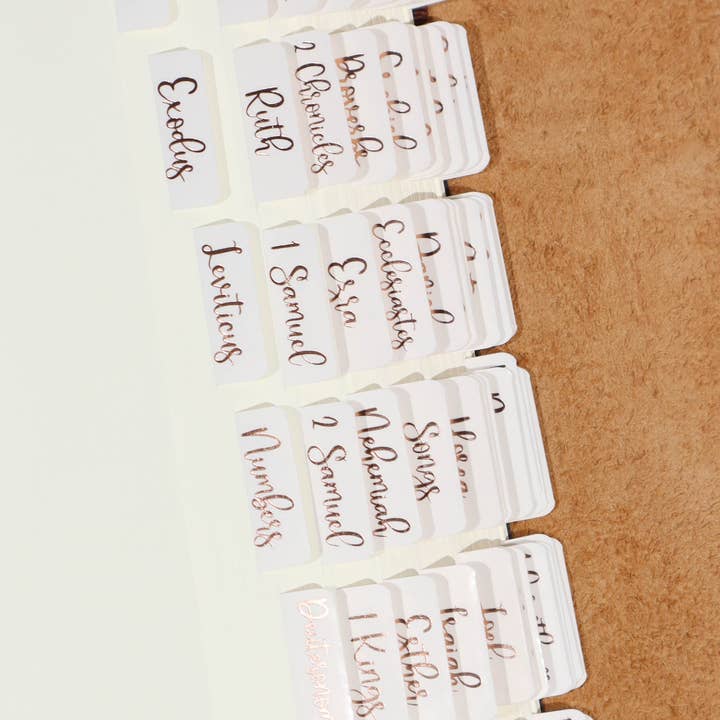 Exodus
Ruth
2 Chronicles
Proverbs
Leviticus
1 Samuel
Ezra
Ecclesiastes
Daniel
Numbers
2 Samuel
Nehemiah
Songs
Hosea
1 Kings
Esther
Isaiah
Joel